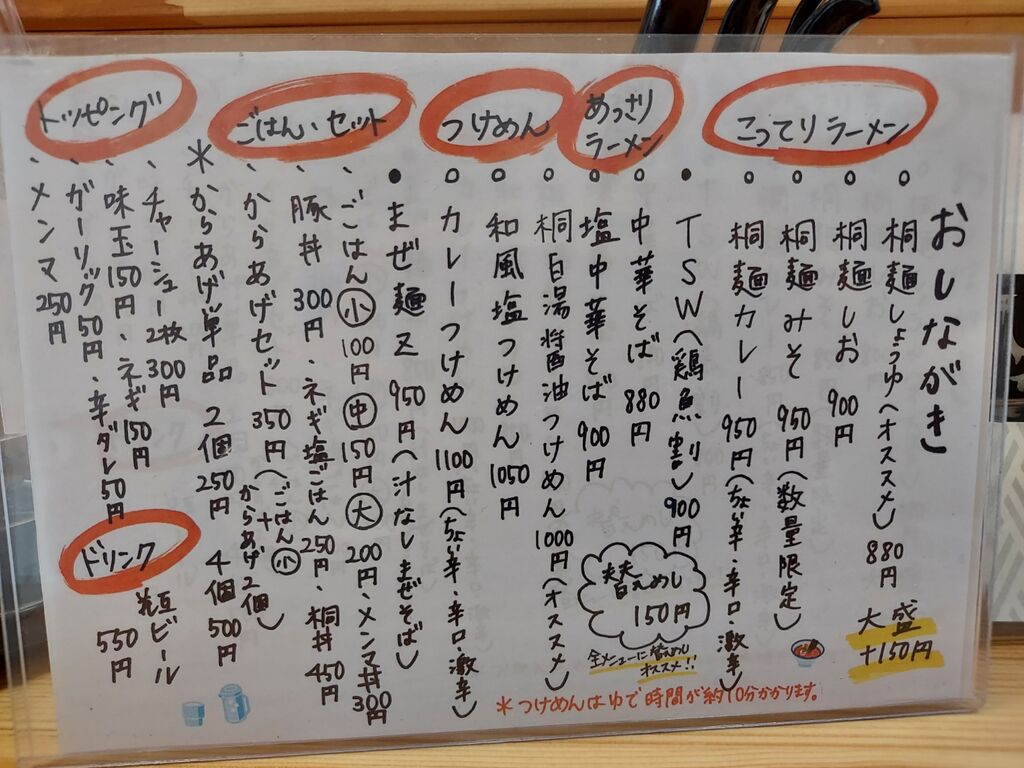 おしながき
こってりラーメン
桐麺しょうゆ(オススメ) 880円
桐麺しお 900円
桐麺みそ 950円(数量限定)
桐麺カレー 950円(ちょい辛・辛口・激辛)
TSW(鶏魚割) 900円
大盛
+150円
あっさり
ラーメン
中華そば 880円
塩中華そば 900円
替えめし
150円
全メニューに替えめし
オススメ!!
つけめん
桐白湯醤油つけめん 1000円(オススメ)
和風塩つけめん 1050円
カレーつけめん 1100円(ちょい辛・辛口・激辛)
まぜ麺Z 950円(汁なしまぜそば)
*つけめんはゆで時間が約10分かかります。
ごはん、セット
、ごはん 小 100円 中 150円 大 200円、メンマ丼 300円
、豚丼 300円、ネギ塩ごはん 250円、桐丼 450円
、からあげセット 350円(ごはん小+からあげ2個)
*からあげ単品 2個 250円 4個 500円
トッピング
、チャーシュー 2枚 300円
、味玉 150円、ネギ 150円
、ガーリック 50円、辛ダレ 50円
、メンマ 250円
ドリンク
瓶ビール 550円